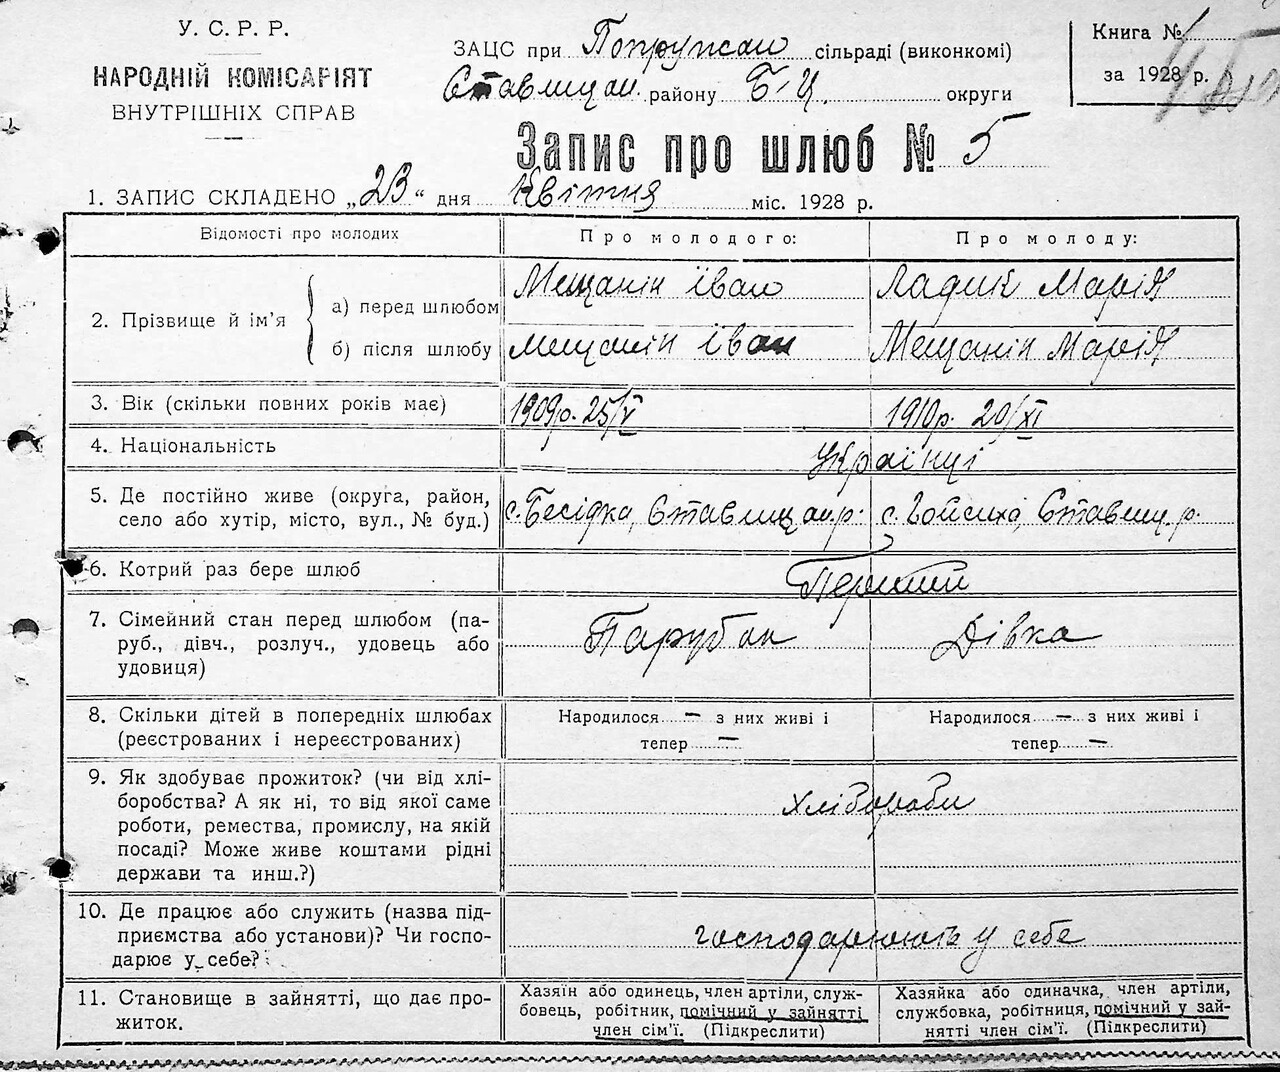 У. С. Р. Р.
НАРОДНІЙ КОМІСАРІЯТ
ВНУТРІШНІХ СПРАВ
ЗАЦС при Попружан сільраді (виконкомі)
Ставищан. району Б-Ц. округи
Книга №
за 1928 р.
Запис про шлюб № 5
1. ЗАПИС СКЛАДЕНО „23“ дня Квітня міс. 1928 р.
Відомості про молодих
Про молодого:
Про молоду:
2. Прізвище й ім’я
а) перед шлюбом
Мещанін Іван
Ладик Марія
б) після шлюбу
Мещанін Іван
Мещанін Марія
3. Вік (скільки повних років має)
1909р. 25/V
1910р. 20/XI
4. Національність
Українці
5. Де постійно живе (округа, район,
село або хутір, місто, вул., № буд.)
с. Бесідка, Ставищан.р.
с. Гойсиха, Ставищ. р.
6. Котрий раз бере шлюб
Перший
7. Сімейний стан перед шлюбом (па-
руб., дівч., розлуч., удовець або
удовиця)
Парубок
Дівка
8. Скільки дітей в попередніх шлюбах
(реєстрованих і нереєстрованих)
Народилося — з них живі і
тепер —
Народилося — з них живі і
тепер —
9. Як здобуває прожиток? (чи від хлі-
боробства? А як ні, то від якої саме
роботи, ремества, промислу, на якій
посаді? Може живе коштами рідні
держави та инш.?)
хлібороби
10. Де працює або служить (назва під-
приємства або установи)? Чи госпо-
дарює у себе?
господарюють у себе
11. Становище в зайнятті, що дає про-
житок.
Хазяїн або одинець, член артіли, служ-
бовець, робітник, помічний у зайнятті
член сім’ї. (Підкреслити)
Хазяйка або одиначка, член артіли,
службовка, робітниця, помічний у зай-
нятті член сім’ї. (Підкреслити)